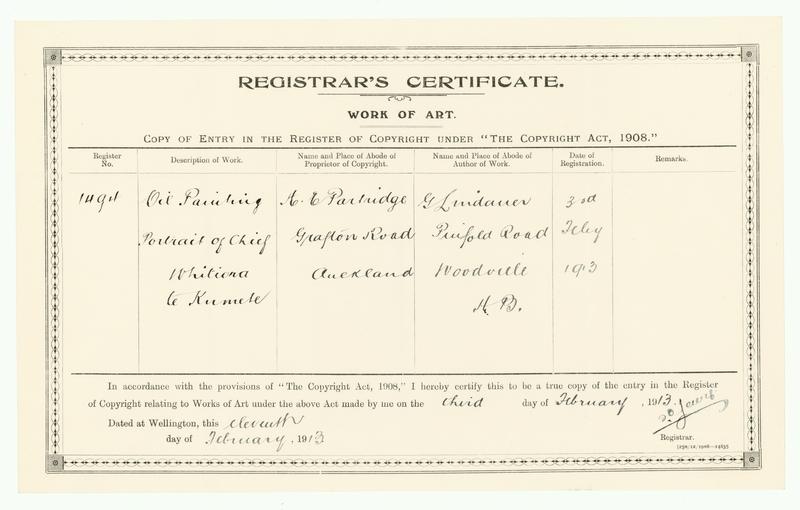 REGISTRAR'S CERTIFICATE.
WORK OF ART.
COPY OF ENTRY IN THE REGISTER OF COPYRIGHT UNDER "THE COPYRIGHT ACT, 1908."
Register No.
Description of Work.
Name and Place of Abode of Proprietor of Copyright.
Name and Place of Abode of Author of Work.
Date of Registration.
Remarks.
Oil Painting A. E Partridge G Lindauer 3rd
Portrait of Chief Grafton Road Pinfold Road Feby
Whitiora Auckland Woodville 1913
te Kumete H. B.
In accordance with the provisions of "The Copyright Act, 1908," I hereby certify this to be a true copy of the entry in the Register
of Copyright relating to Works of Art under the above Act made by me on the third day of February, 1913.
Dated at Wellington, this eleventh
day of February, 1913
Registrar.
[250/12/1908—14635